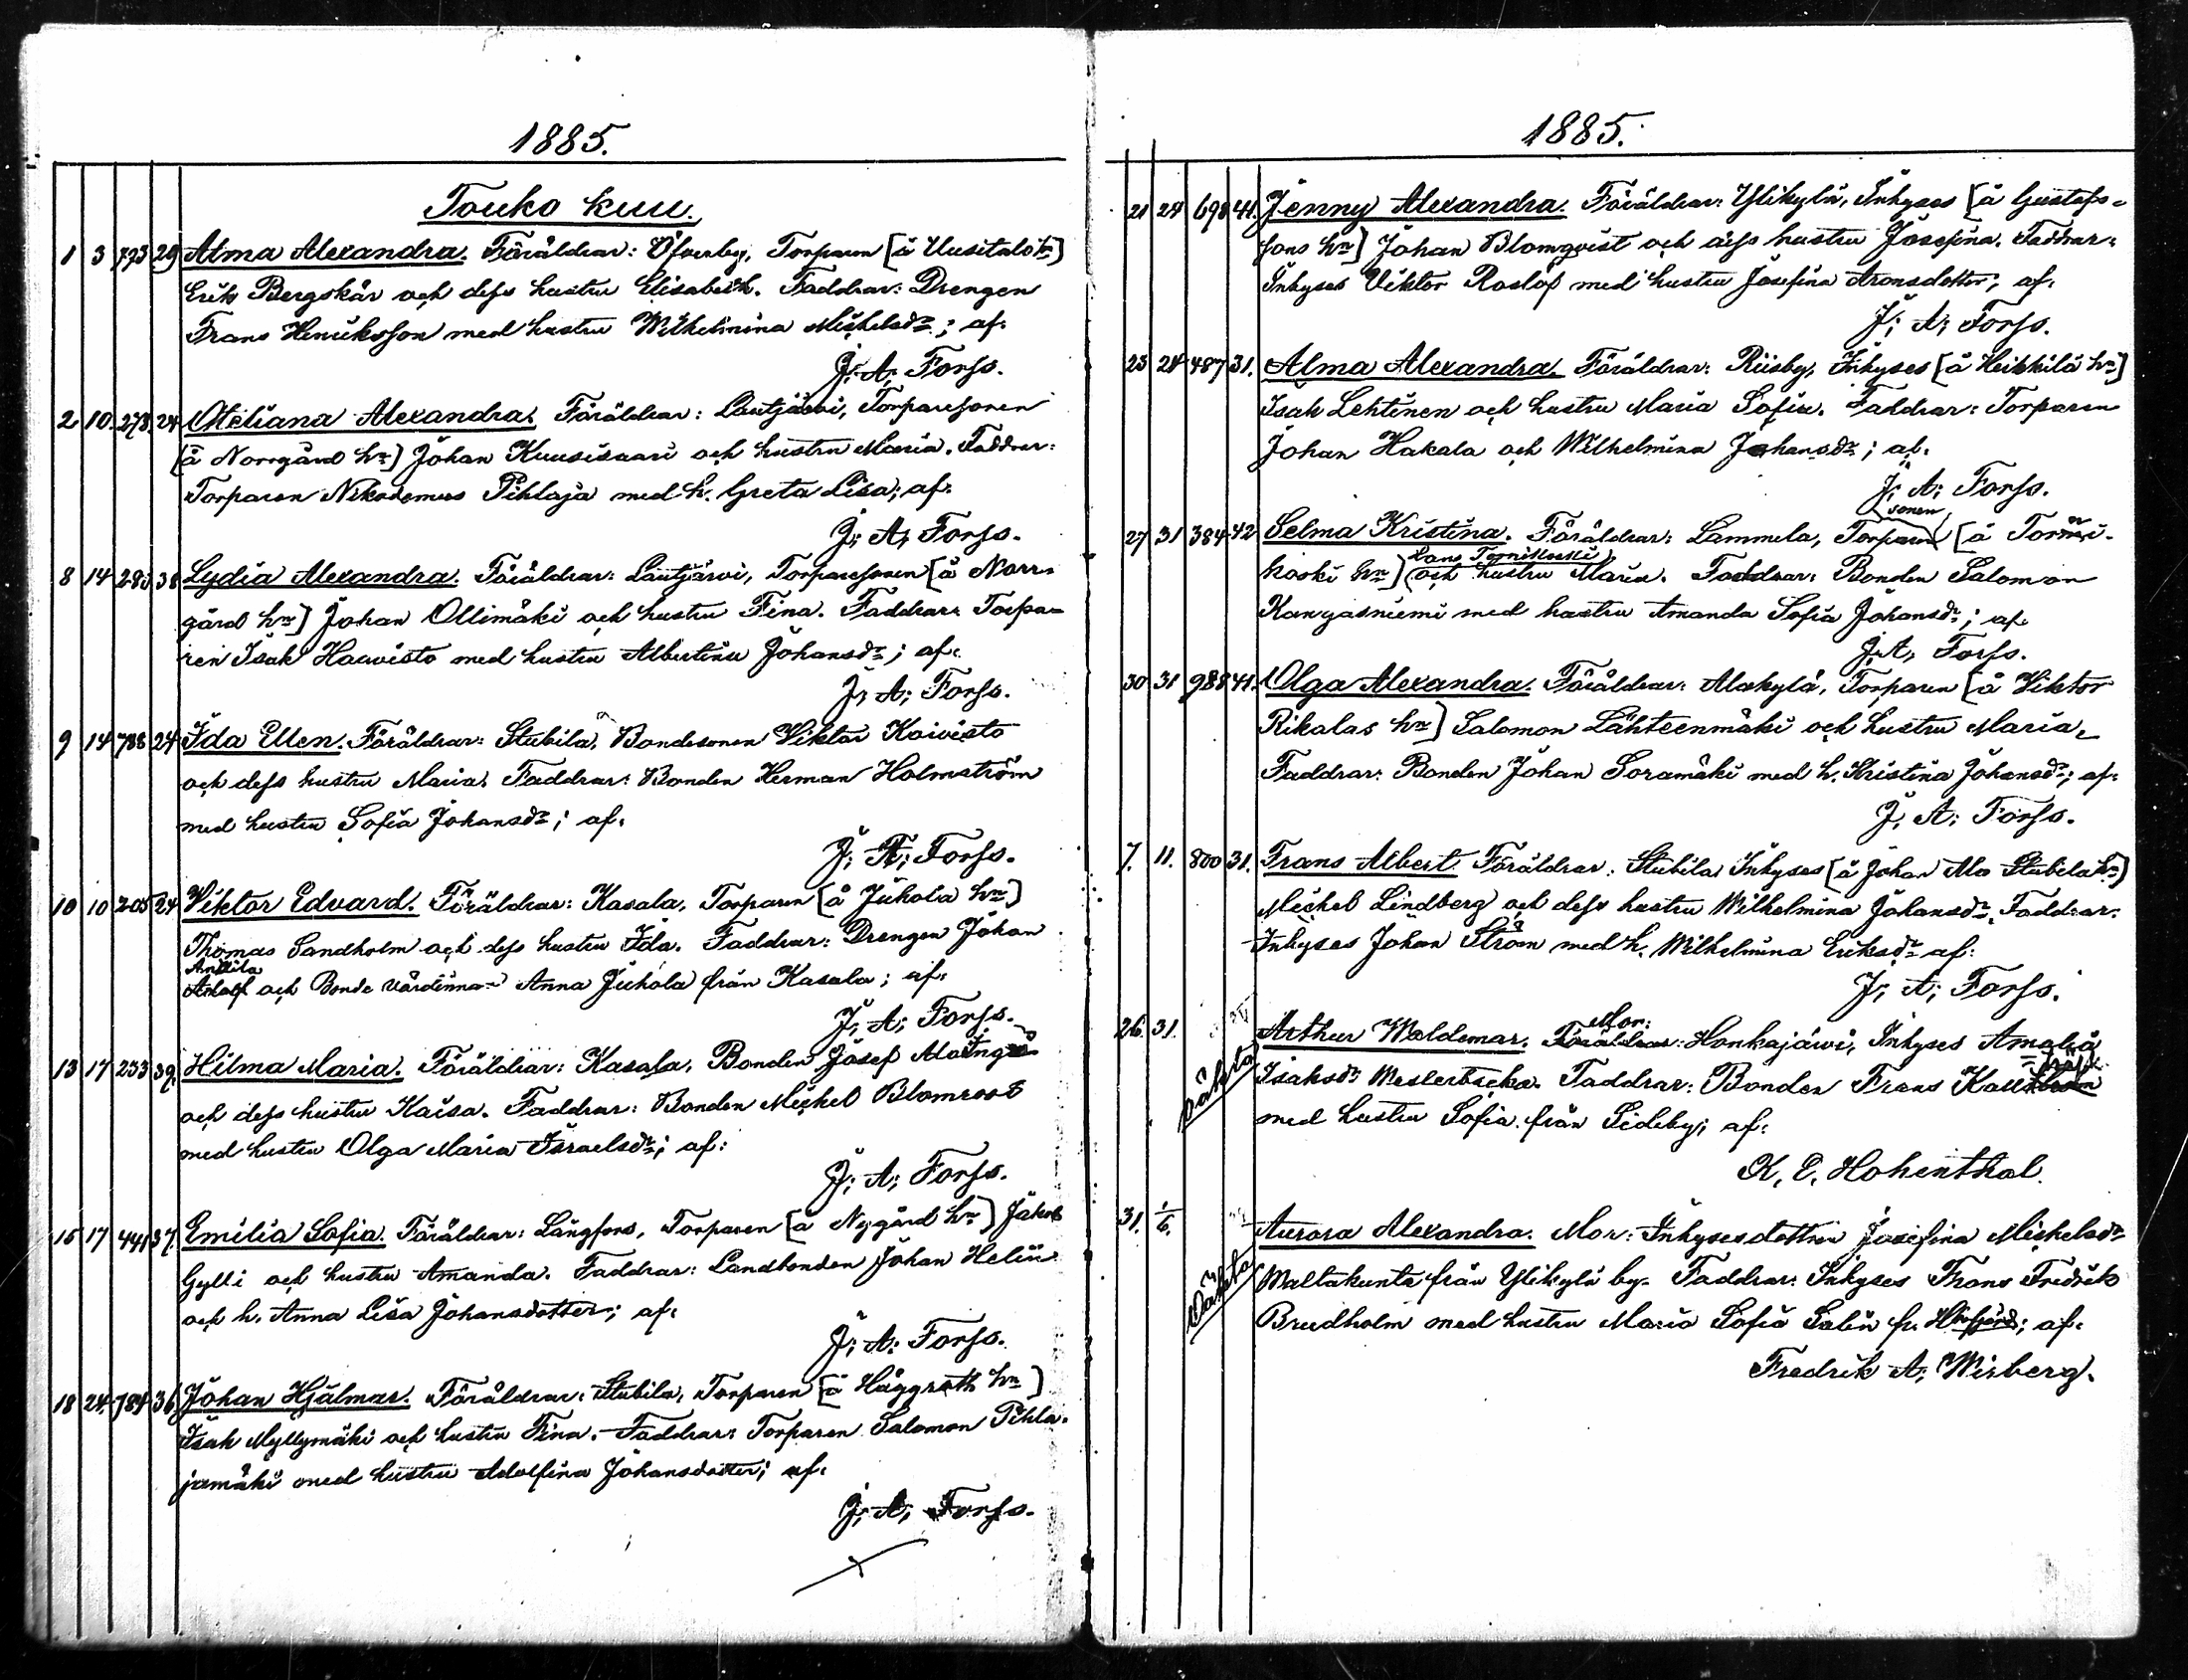 1885.
Touko kuu.
1 3 793 29 Alma Alexandra. Föräldrar: Öfverby, Torparen [å Uusitalo hn]
Erik Bergskär och dess hustru Elisabeth. Faddrar: Drengen
Frans Henriksson med hustru Wilhelmina Michelsdr; af:
J. A. Forss.
2 10. 278. 24 Otteliana Alexandra. Föräldrar: Lautjärvi, Torparesonen
[å Norrgård hn] Johan Kuusisaari och hustru Maria. Faddrar:
Torparen Nikodemus Pihlaja med h. Greta Lisa; af:
J. A. Forss.
8 14 285 38 Lydia Alexandra. Föräldrar: Lautjärvi, Torparesonen [å Norr-
gård hn] Johan Ollimäki och hustru Fina. Faddrar: Torpa-
ren Isak Haavisto med hustru Albertina Johansdr; af:
J. A. Forss.
9 14 788 24 Ida Ellen. Föräldrar: Stubila, Bondesonen Viktor Koivisto
och dess hustru Maria. Faddrar: Bonden Herman Holmström
med hustru Sofia Johansdr; af:
J. A. Forss.
10 10 205 24 Viktor Edvard. Föräldrar: Kasala, Torparen [å Juhola hn]
Thomas Sandholm och dess hustru Ida. Faddrar: Drengen Johan
Anttila
Adolf och Bonde värdinnan Anna Juhola från Kasala; af:
J. A. Forss.
13 17 233 39. Hilma Maria. Föräldrar: Kasala, Bonden Josef
och dess hustru Kaisa. Faddrar: Bonden Michel Blomroos
med hustru Olga Maria Israelsdr; af:
J. A. Forss.
15 17 441 37. Emilia Sofia. Föräldrar: Långfors, Torparen [å Nygård hn] Jakob
Gylli och hustru Amanda. Faddrar: Landbonden Johan Helin
och h. Anna Lisa Johansdotter; af:
J. A. Forss.
18 24 784 36 Johan Hjalmar. Föräldrar: Stubila, Torparen [å Häggroth hn]
Isak Myllymäki och hustru Fina. Faddrar: Torparen Salomon Pihla-
jamäki med hustru Adolfina Johansdotter; af:
J. A. Forss.
1885.
21 24 698 41. Jenny Alexandra. Föräldrar: Ylikylä, Inhyses [å Gustafs-
sons hn] Johan Blomqvist och dess hustru Josefina. Faddrar:
Inhyses Viktor Roslöf med hustru Josefina Aronsdotter; af:
J. A. Forss.
23 24 487 31. Alma Alexandra. Föräldrar: Riisby, Inhyses [å Heikkilä hn]
Isak Lehtinen och hustru Maria Sofia. Faddrar: Torparen
Johan Hakala och Wilhelmina Johansdr; af:
J. A. Forss.
sonen
27 31 384 42 Selma Kristina. Föräldrar: Lammela, Torpare [å Torni-
koski hn] och hustru Maria. Faddrar: Bonden Salomon
Kangasniemi med hustru Amanda Sofia Johansdr; af:
J. A. Forss.
30 31 988 41. Olga Alexandra. Föräldrar: Alakylä, Torparen [å Viktor
Rikalas hn] Salomon Lähteenmäki och hustru Maria.
Faddrar: Bonden Johan Soramäki med h. Kristina Johansdr; af:
J. A. Forss.
7. 11. 800 31. Frans Albert. Föräldrar: Stubila, Inhyses [å Johan Ala Stubila hn]
Michel Lindberg och dess hustru Wilhelmina Johansdr. Faddrar:
Inhyses Johan Ström med h. Wilhelmina Eriksdr af:
J. A. Forss.
Mor:
26. 31. Arthur Waldemar. Föräldrar: Honkajärvi, Inhyses Amalia
oäkta Isaksdr Mesterbacka. Faddrar: Bonden Frans
med hustru Sofia från Sideby; af:
K. E. Hohenthal.
31. 1/6. Aurora Alexandra. Mor: Inhysesdottren Josefina Michelsdr
oäkta Waltakunta från Ylikylä by. Faddrar: Inhyses Frans Fredrik
Brudholm med hustru Maria Sofia Salin fr. Härkmeri; af:
Fredrik A. Wisberg.